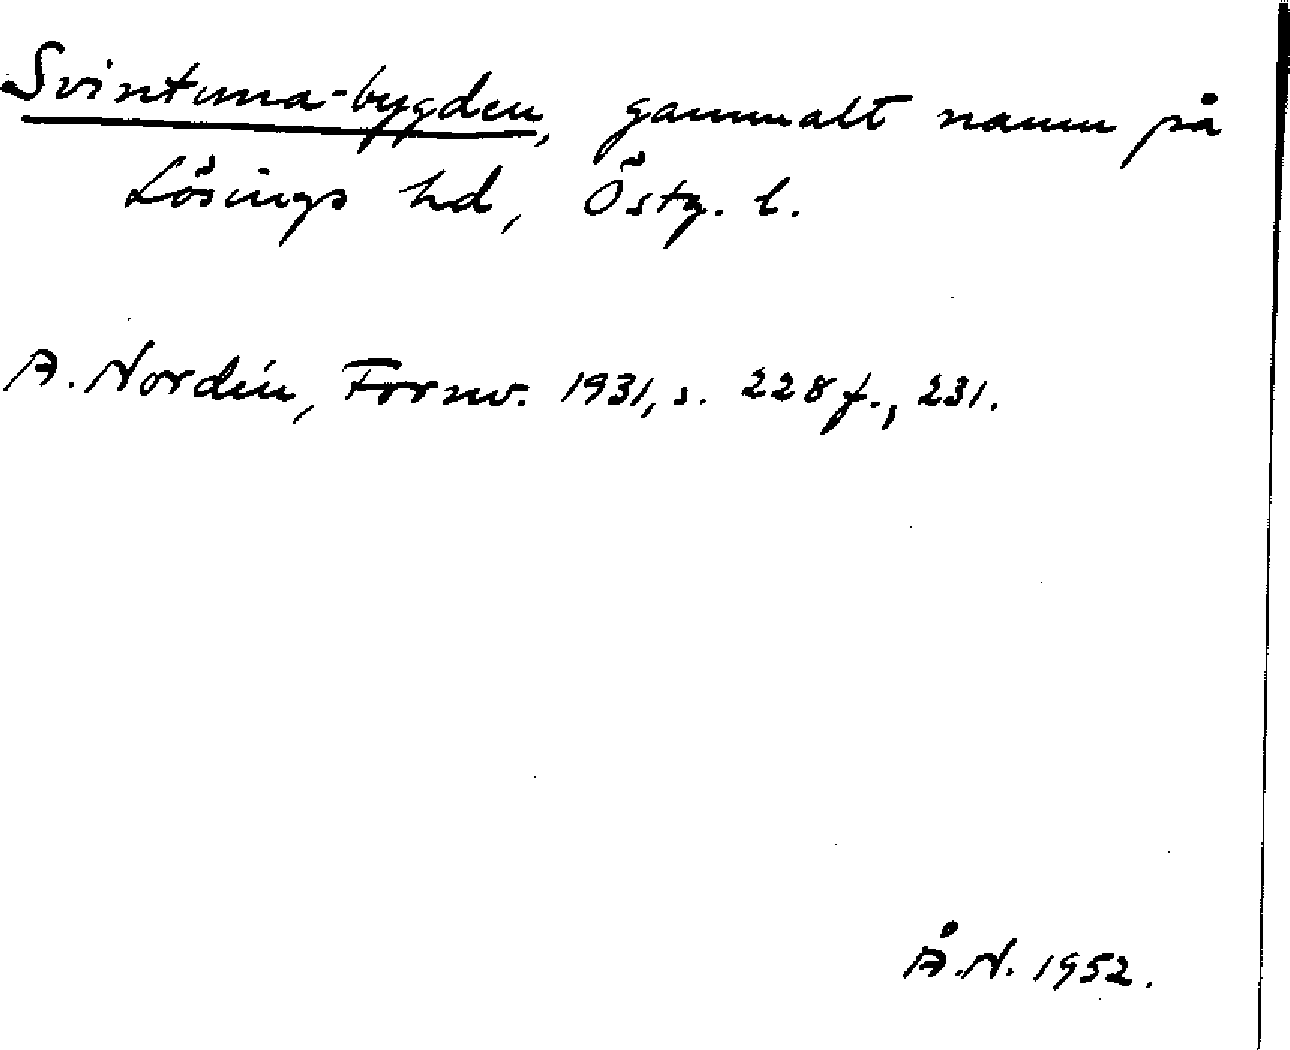 Svintuna-bygden, gammalt namn på
Lösings hd, Östg. l.
A. Nordén, Fornv. 1931, s. 228 f., 231.
Å.N. 1952.